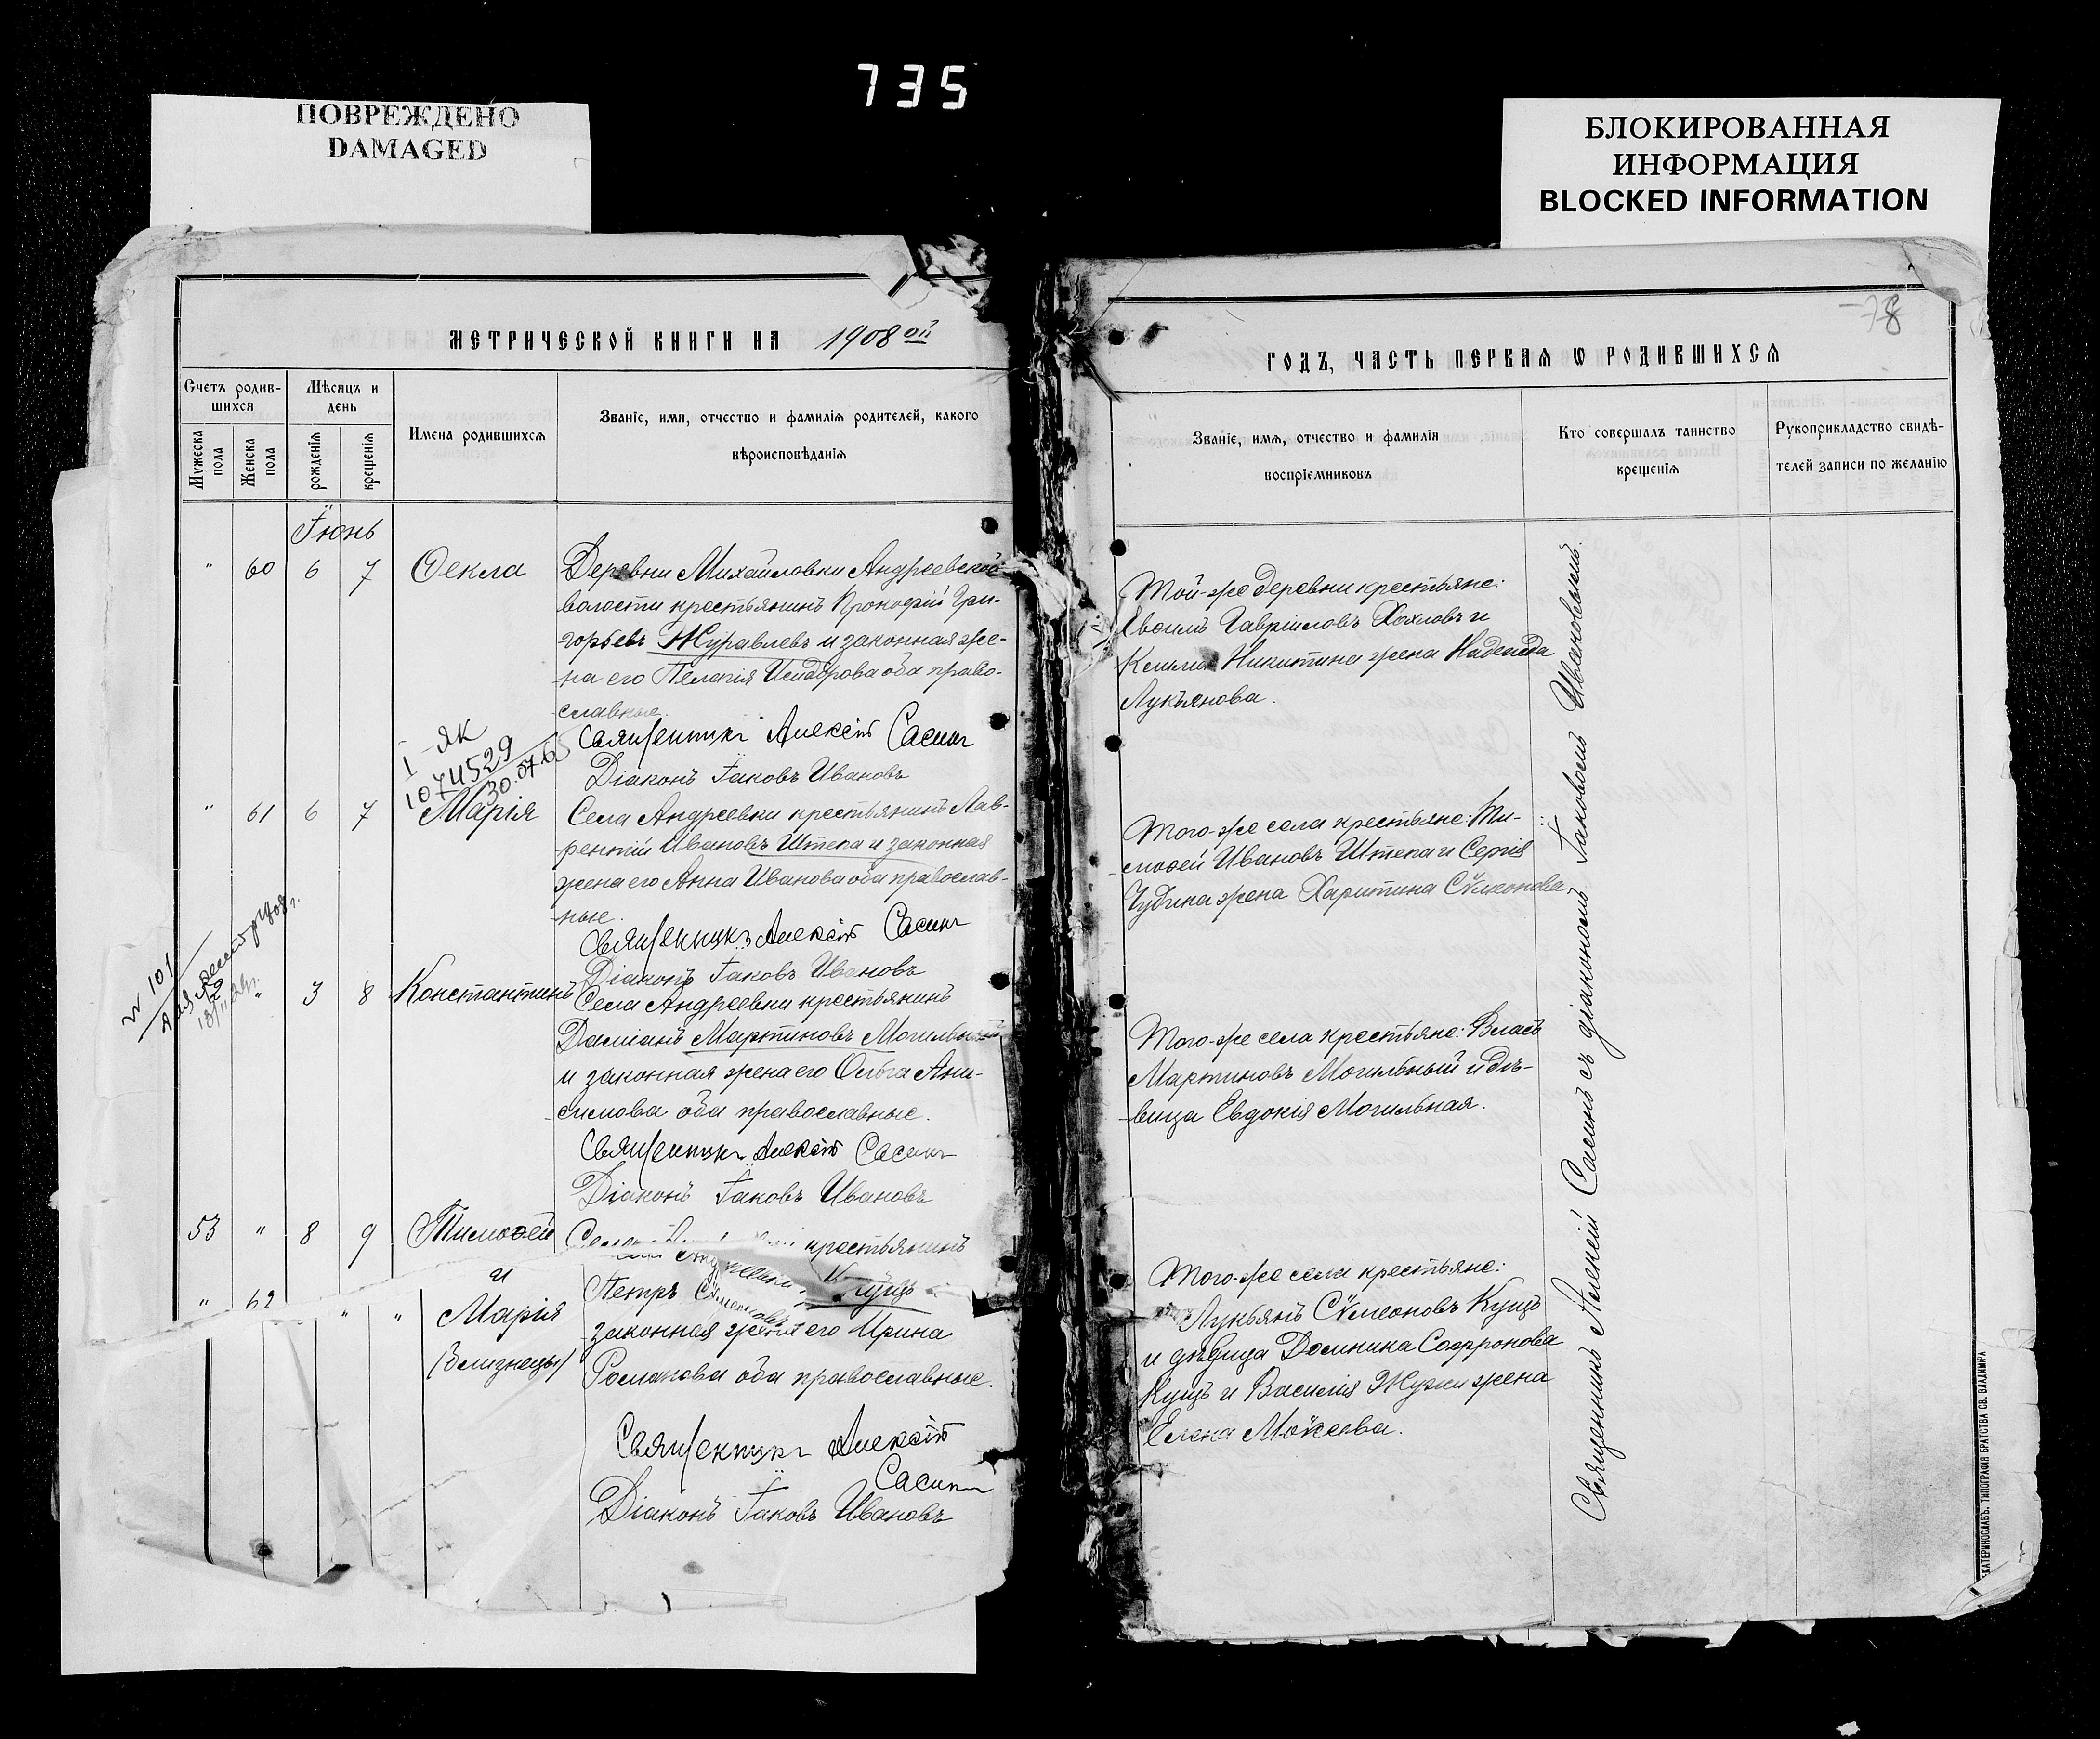 735
ПОВРЕЖДЕНО
DAMAGED
БЛОКИРОВАННАЯ
ИНФОРМАЦИЯ
BLOCKED INFORMATION
МЕТРИЧЕСКОЙ КНИГИ НА 1908 ой
Счетъ родив-
шихся
Мѣсяцъ и
день
Мужеска
пола
Женска
пола
рожденія
крещенія
Имена родившихся
Званіе, имя, отчество и фамилія родителей, какого
вѣроисповѣданія
Іюнь
" 60 6 7 Ѳекла
Деревни Михайловки Андреевской
волости крестьянинъ Прокофій Гри-
горьевъ Журавлевъ и законная же-
на его Пелагія Исидорова оба право-
славные.
Священникъ Алексій Сасинъ
Діаконъ Іаковъ Ивановъ
I-ЯК
1074529
30.07.65
" 61 6 7 Марія
Села Андреевки крестьянинъ Лав-
рентій Ивановъ Штепа и законная
жена его Анна Иванова оба православ-
ные.
Священникъ Алексій Сасинъ
Діаконъ Іаковъ Ивановъ
№ 101
" 3 8 Константинъ
Села Андреевки крестьянинъ
Даміанъ Мартиновъ Могильный
и законная жена его Ольга Ани-
симова оба православные.
Священникъ Алексій Сасинъ
Діаконъ Іаковъ Ивановъ
53 " 8 9 Тимоѳей
и
" 62 " " Марія
(близнецы)
Села крестьянинъ
Петръ Кущъ
законная жена его Ирина
Романова оба православные.
Священникъ Алексій
Сасинъ
Діаконъ Іаковъ Ивановъ
78
ГОДЪ, ЧАСТЬ ПЕРВАЯ Ѡ РОДИВШИХСЯ
Званіе, имя, отчество и фамилія
воспріемниковъ
Кто совершалъ таинство
крещенія
Рукоприкладство свидѣ-
телей записи по желанію
Той-же деревни крестьяне:
Гавріиловъ Хохловъ и
Никитина жена Надежда
Лукьянова.
Того-же села крестьяне: Ти-
моѳей Ивановъ Штепа и Сергія
Чубина жена Харитина Сѵмеонова
Того-же села крестьяне: Власъ
Мартиновъ Могильный и дѣ-
вица Евдокія Могильная.
Того-же села крестьяне:
Лукьянъ Сѵмеоновъ Кущъ
и дѣвица Домника Софронова
Кущъ и Василія Жужи жена
Елена Моѵсеева.
Священникъ Алексій Сасинъ съ діакономъ Іаковомъ Ивановымъ.
ЕКАТЕРИНОСЛАВЪ. ТИПОГРАФІЯ БРАТСТВА СВ. ВЛАДИМІРА